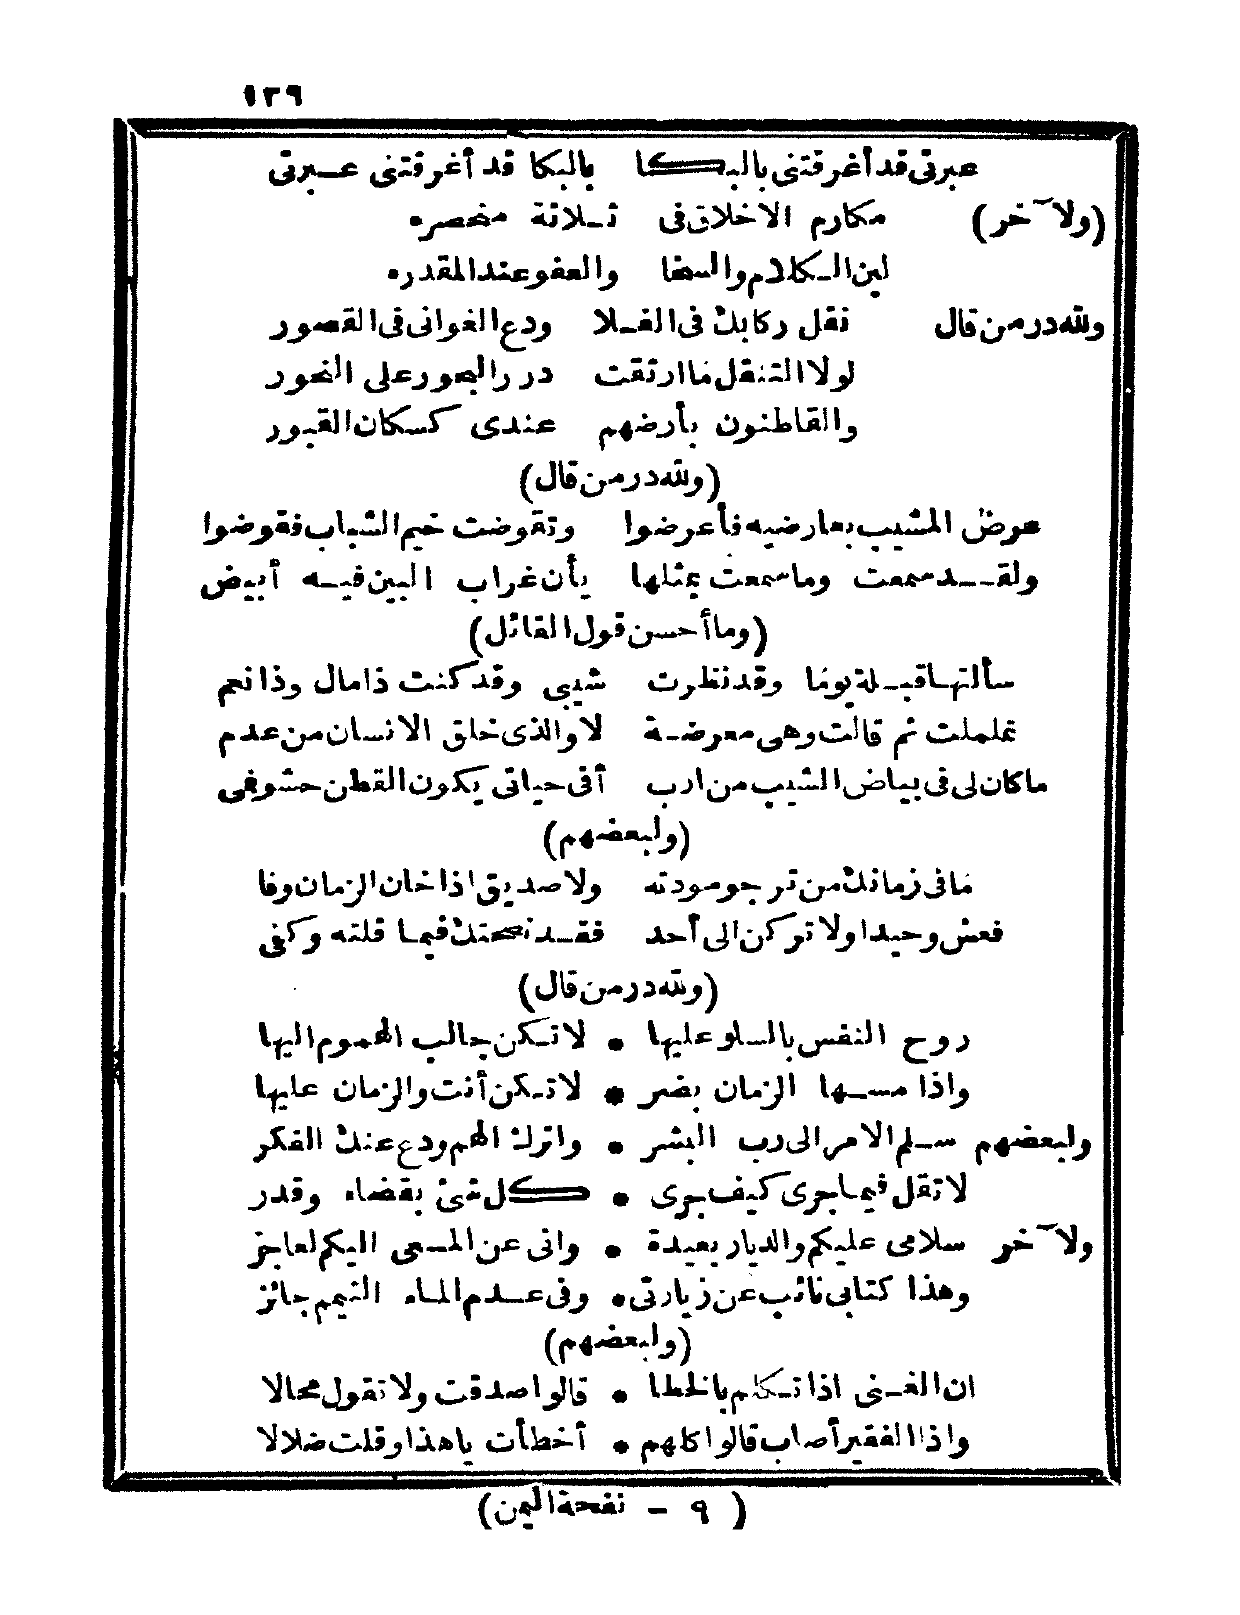 ١٢٩
عبرتى قد أغرقتنى بالبكا بالبكا قد أغرقتنى عبرتى
(ولآخر) مكارم الاخلاق فى ثلاثة منحصره
لين الكلام والسخا والعفو عند المقدره
ولله در من قال نقل ركابك فى الفلا ودع الغوانى فى القصور
لولا التنقل ما ارتقت درر البحور على النحور
والقاطنون بأرضهم عندى كسكان القبور
(ولله در من قال)
عرض المشيب بعارضيه فأعرضوا وتقوضت خيم الشباب فقوضوا
ولقد سمعت وما سمعت بمثلها بأن غراب البين فيه أبيض
(وما أحسن قول القائل)
سألتها قبلة يوما وقد نظرت شيبى وقد كنت ذا مال وذا نعم
تململت ثم قالت وهى معرضة لا والذى خلق الانسان من عدم
ما كان لى فى بياض الشيب من ارب أفى حياتى يكون القطن حشو فى
(ولبعضهم)
ما فى زمانك من ترجو مودته ولا صديق اذا خان الزمان وفا
فعش وحيدا ولا تركن الى أحد فقد نصحتك فيما قلته وكفى
(ولله در من قال)
روح النفس بالسلو عليها • لا تكن جالب الهموم اليها
واذا مسها الزمان بضر • لا تكن أنت والزمان عليها
ولبعضهم سلم الامر الى رب البشر • واترك الهم ودع عنك الفكر
لا تقل فيما جرى كيف جرى • كل شئ بقضاء وقدر
ولآخر سلامى عليكم والديار بعيدة • وانى عن المسعى اليكم لعاجز
وهذا كتابى نائب عن زيارتى • وفى عدم الماء التيمم جائز
(ولبعضهم)
ان الغنى اذا تكلم بالخطا • قالوا صدقت ولا تقول محالا
واذا الفقير أصاب قالوا كلهم • أخطأت ياهذا وقلت ضلالا
( ٩ - نفحة اليمن)